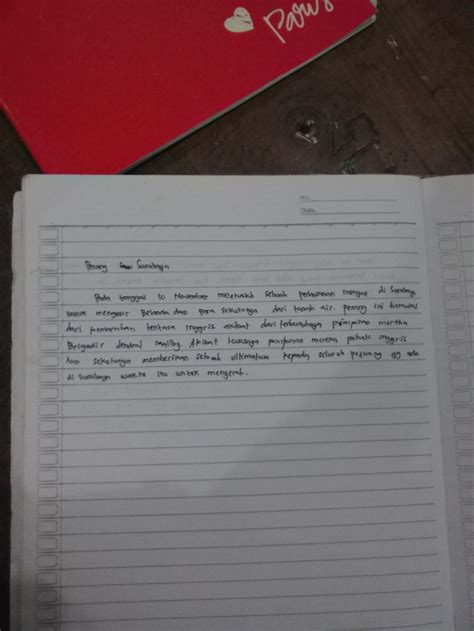 Paris
No.
Date
Perang Surabaya
Pada tanggal 10 November meletuslah sebuah perlawanan rakyat di Surabaya
untuk mengusir Belanda dan para sekutunya dari tanah air. perang ini bermula
dari kemarahan tentara Inggris akibat dari terbunuhnya pimpinan mereka
Brigadir Jenderal Mallby. Akibat pimpinan mereka pihak Inggris
dan sekutunya memberikan sebuah ultimatum kepada seluruh pejuang yg ada
di Surabaya waktu itu untuk menyerah.